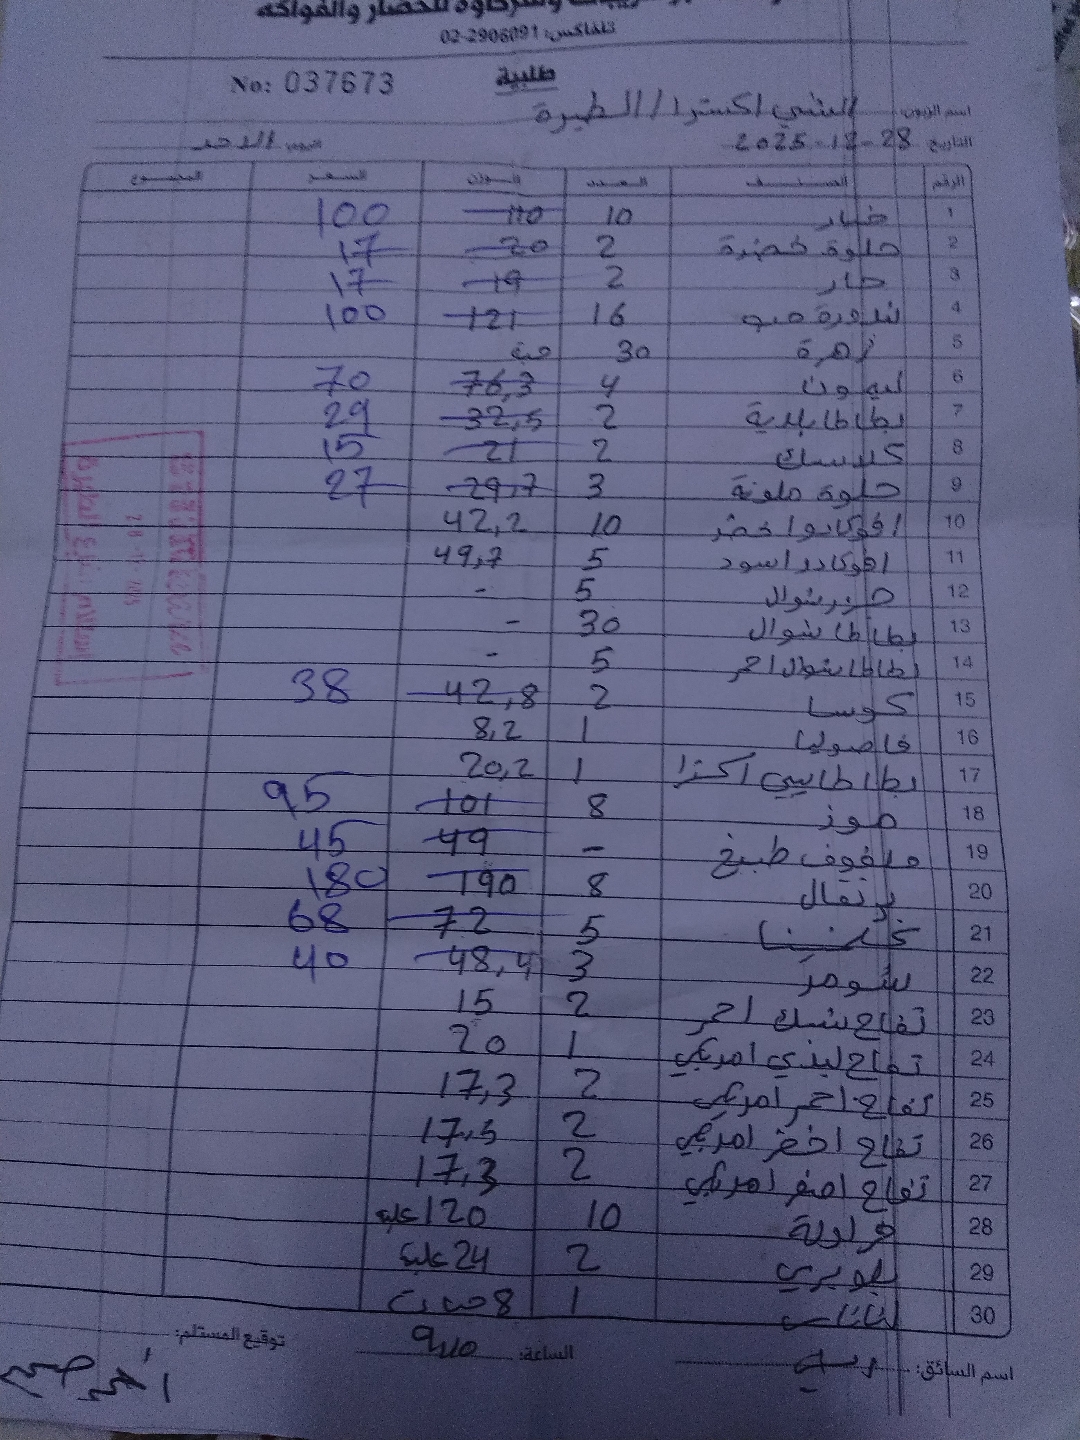 للخضار والفواكه
تلفاكس: 02-2906091
طلبية
No: 037673
اسم الزبون: الشني اكسترا / الطيرة
التاريخ 28-12-2025 اليوم الاحد
الرقم الصنف العدد الوزن السعر المجموع
1 خيار 10 110 100
2 حلوة خضرة 2 20 17
3 حار 2 19 17
4 بندورة حب 16 121 100
5 زهرة 30 حبة
6 ليمون 4 76,3 70
7 بطاطا بلدية 2 32,5 29
8 كلاسك 2 21 15
9 حلوة ملونة 3 29,7 27
10 افوكادو اخضر 10 42,2
11 افوكادو اسود 5 49,7
12 جزر شوال 5 -
13 بطاطا شوال 30 -
14 بطاطا شوال احمر 5 -
15 كوسا 2 42,8 38
16 فاصوليا 1 8,2
17 بطاطا بيبي اكسترا 1 20,2
18 موز 8 101 95
19 ملفوف طبيخ - 49 45
20 برتقال 8 190 180
21 كلمنتينا 5 72 68
22 شومر 3 48,4 40
23 تفاح سك احمر 2 15
24 تفاح ليدي امريكي 1 20
25 تفاح احمر امريكي 2 17,3
26 تفاح اخضر امريكي 2 17,5
27 تفاح اصفر امريكي 2 17,3
28 فراولة 10 120 علبة
29 بلوبري 2 24 علبة
30 اناناس 1 8 حبات
اسم السائق: الساعة: 9:10 توقيع المستلم: